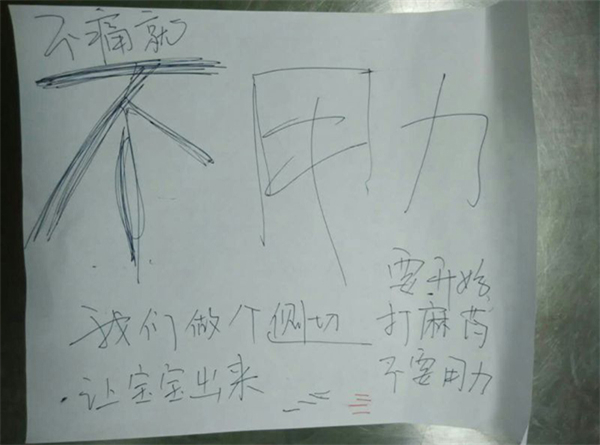 不痛就
不用力
我们做个侧切
让宝宝出来
要开始
打麻药
不要用力